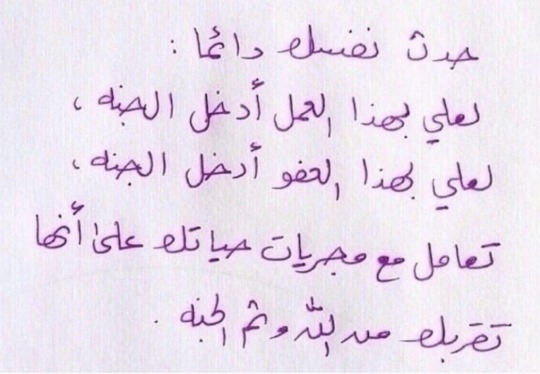 حدث نفسك دائما :
لعلي بهذا العمل أدخل الجنه ،
لعلي بهذا العفو أدخل الجنه ،
تعامل مع مجريات حياتك على أنها
تقربك من الله وثم الجنه .